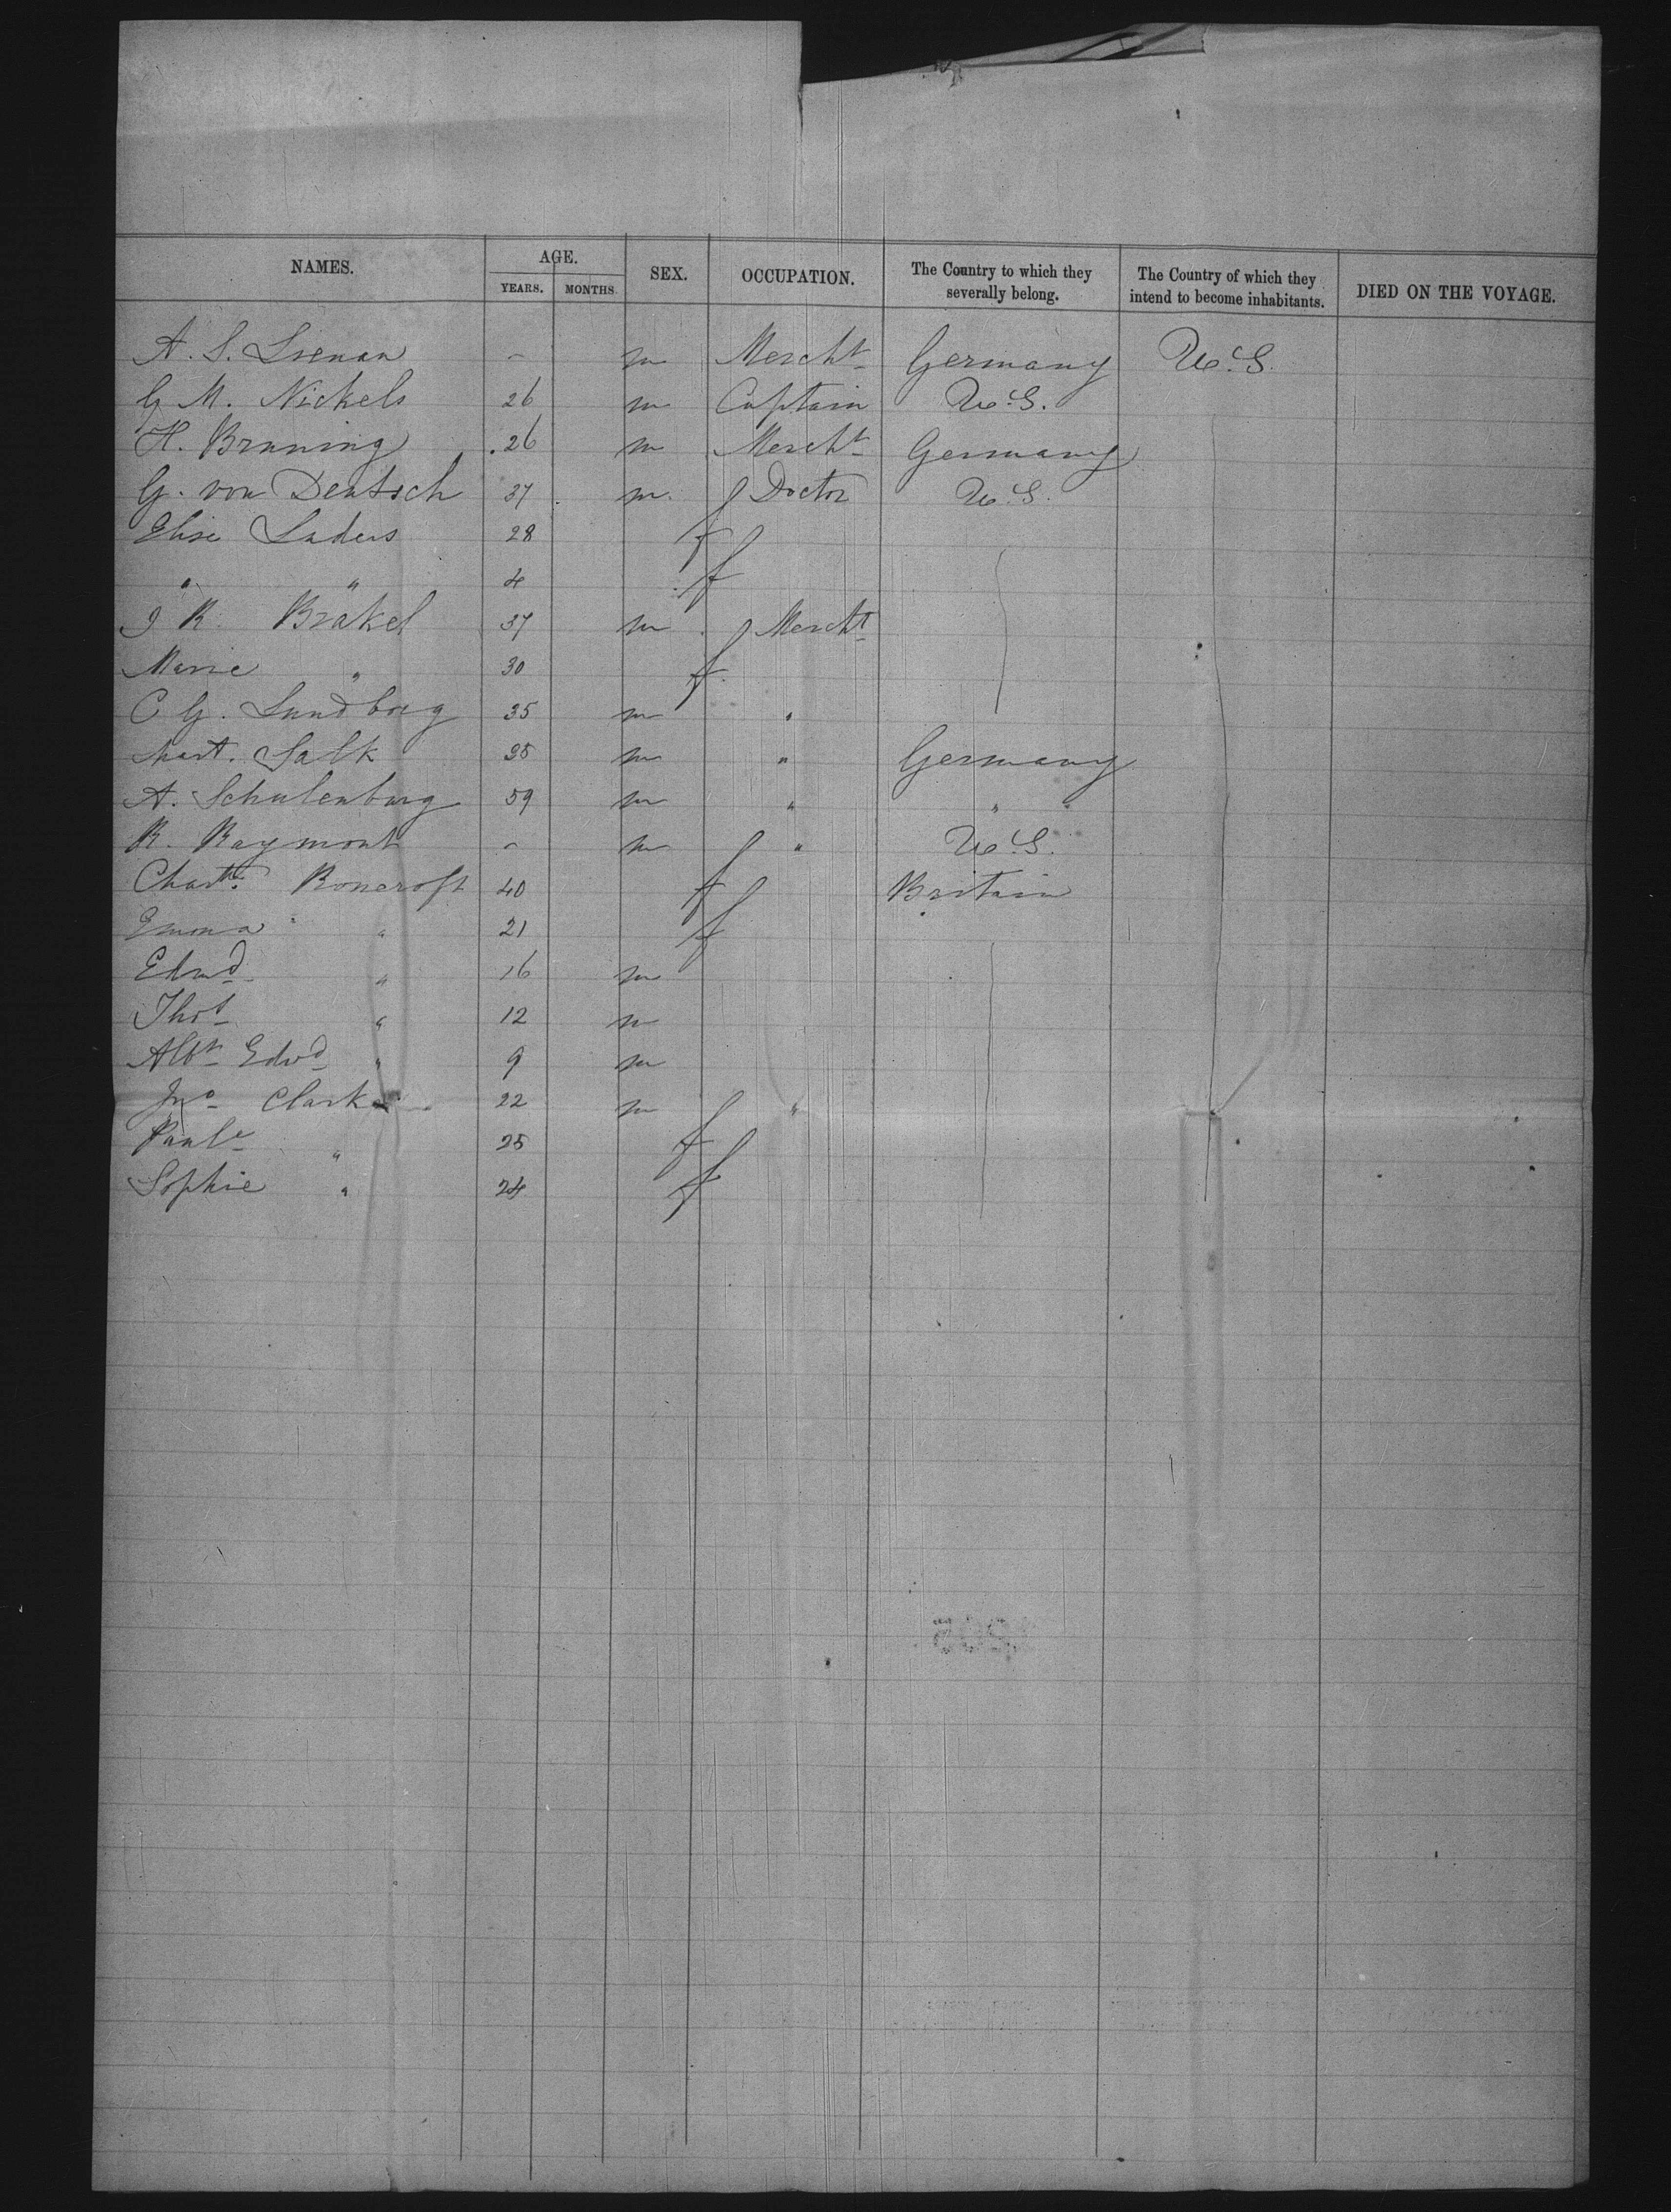 NAMES. AGE. SEX. OCCUPATION. The Country to which they severally belong. The Country of which they intend to become inhabitants. DIED ON THE VOYAGE.
YEARS. MONTHS.
A. S. Lienau - m Mercht Germany U.S.
G M. Nickels 26 m Captain U.S.
H. Bruning 26 m Mercht Germany
G. von Deutsch 37 m Doctor U.S.
Elise Luders 28 f
" " 4 f
J R. Brakel 37 m Mercht
Marie " 30 f
C G. Lundborg 35 m "
Mart. Salk 35 m " Germany
A. Schulenburg 59 m " " "
R. Raymont - m " U.S.
Chartte Boncroft 40 f Britain
Emma " 21 f
Edwd " 16 m
Thos " 12 m
Albt Edwd " 9 m
Jno Clark 22 m "
Paule " 25 f
Sophie " 24 f